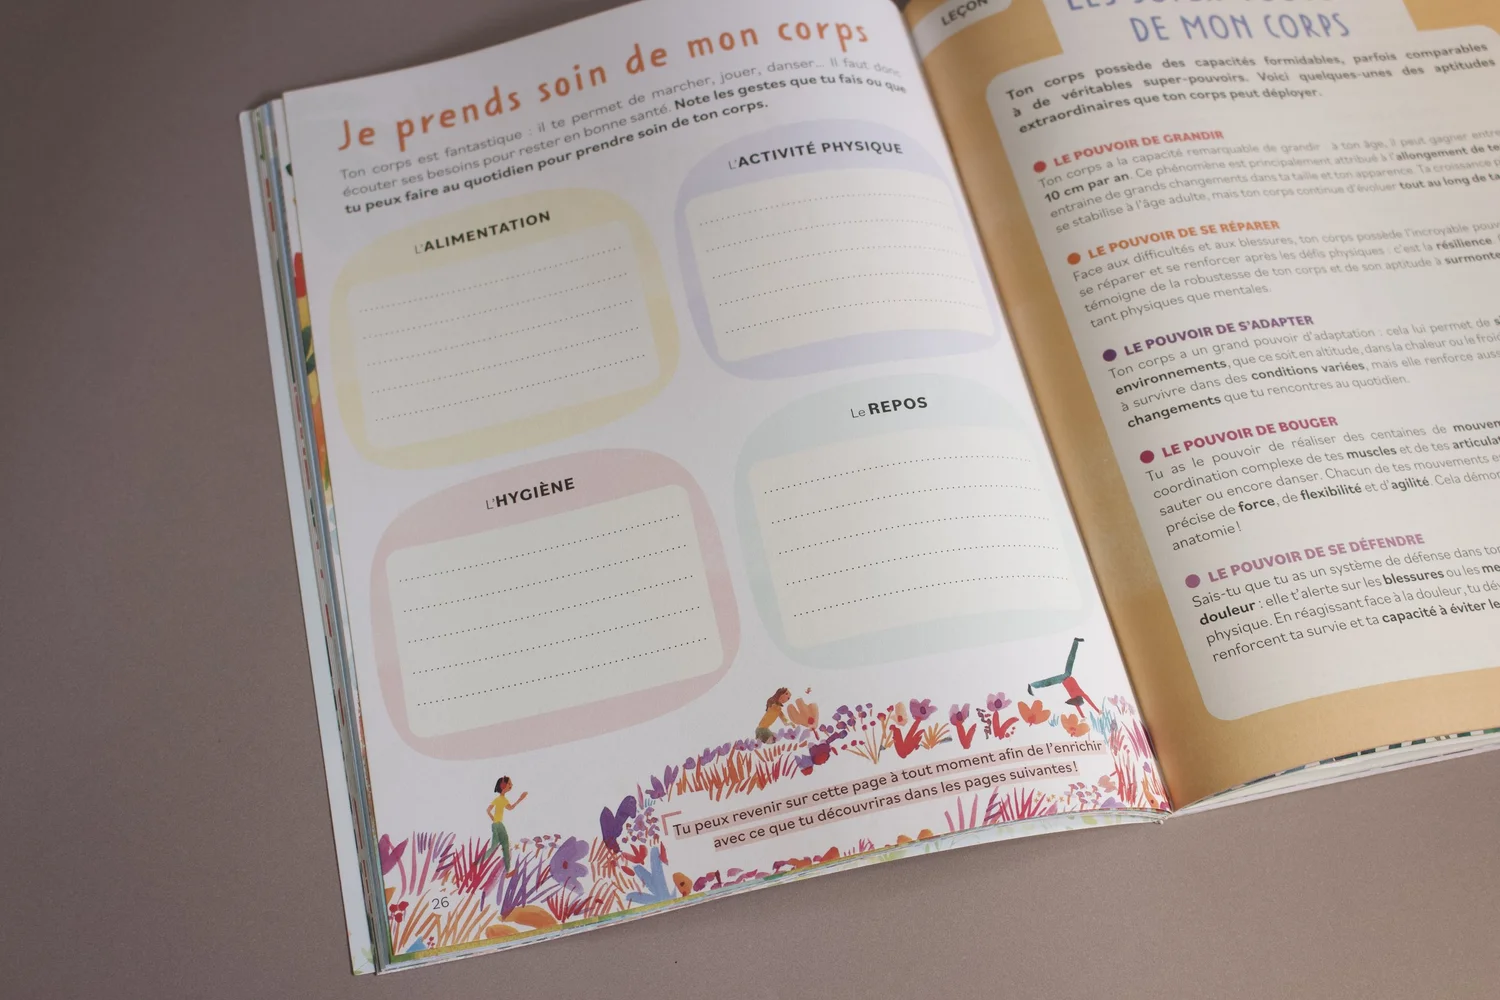 Je prends soin de mon corps
Ton corps est fantastique : il te permet de marcher, jouer, danser... Il faut donc
écouter ses besoins pour rester en bonne santé. Note les gestes que tu fais ou que
tu peux faire au quotidien pour prendre soin de ton corps.
L'ALIMENTATION
L'ACTIVITÉ PHYSIQUE
L'HYGIÈNE
Le REPOS
Tu peux revenir sur cette page à tout moment afin de l'enrichir
avec ce que tu découvriras dans les pages suivantes !
26
LEÇON
DE MON CORPS
Ton corps possède des capacités formidables, parfois comparables
à de véritables super-pouvoirs. Voici quelques-unes des aptitudes
extraordinaires que ton corps peut déployer.
LE POUVOIR DE GRANDIR
Ton corps a la capacité remarquable de grandir : à ton âge, il peut gagner entre
10 cm par an. Ce phénomène est principalement attribué à l'allongement de
entraine de grands changements dans ta taille et ton apparence. Ta croissance
se stabilise à l'âge adulte, mais ton corps continue d'évoluer tout au long de
LE POUVOIR DE SE RÉPARER
Face aux difficultés et aux blessures, ton corps possède l'incroyable
se réparer et se renforcer après les défis physiques : c'est la résilience.
témoigne de la robustesse de ton corps et de son aptitude à
tant physiques que mentales.
LE POUVOIR DE S'ADAPTER
Ton corps a un grand pouvoir d'adaptation : cela lui permet de
environnements, que ce soit en altitude, dans la chaleur ou le froid
à survivre dans des conditions variées, mais elle renforce
changements que tu rencontres au quotidien.
LE POUVOIR DE BOUGER
Tu as le pouvoir de réaliser des centaines de
coordination complexe de tes muscles et de tes
sauter ou encore danser. Chacun de tes mouvements
précise de force, de flexibilité et d'agilité. Cela
anatomie !
LE POUVOIR DE SE DÉFENDRE
Sais-tu que tu as un système de défense dans
douleur : elle t'alerte sur les blessures ou les
physique. En réagissant face à la douleur, tu
renforcent ta survie et ta capacité à éviter